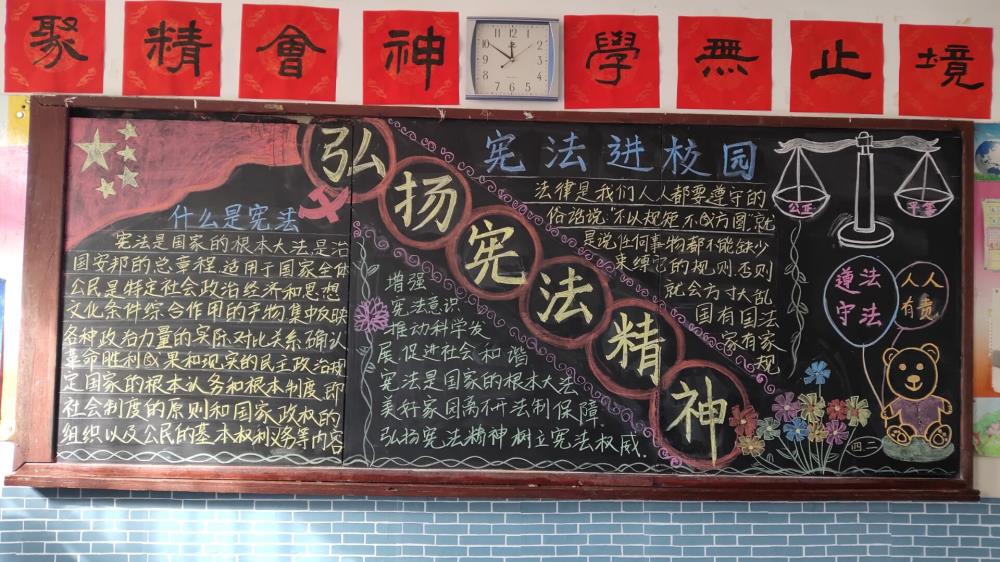 聚精會神 學無止境
弘扬宪法精神
宪法进校园
什么是宪法
宪法是国家的根本大法,是治
国安邦的总章程,适用于国家全体
公民,是特定社会政治经济和思想
文化条件综合作用的产物,集中反映
各种政治力量的实际对比关系,确认
革命胜利成果和现实的民主政治,规
定国家的根本认务和根本制度,即
社会制度的原则和国家政权的
组织以及公民的基本权利义务等内容
增强
宪法意识
推动科学发
展,促进社会和谐
宪法是国家的根本大法
美好家园离不开法制保障
弘扬宪法精神树立宪法权威.
法律是我们人人都要遵守的
俗话说:“不以规矩不成方圆”就
是说任何事物都不能缺少
束缚它的规则,否则
就会方寸大乱
国有国法
家有家
规
公正
平等
遵法
守法
人人
有责
四二